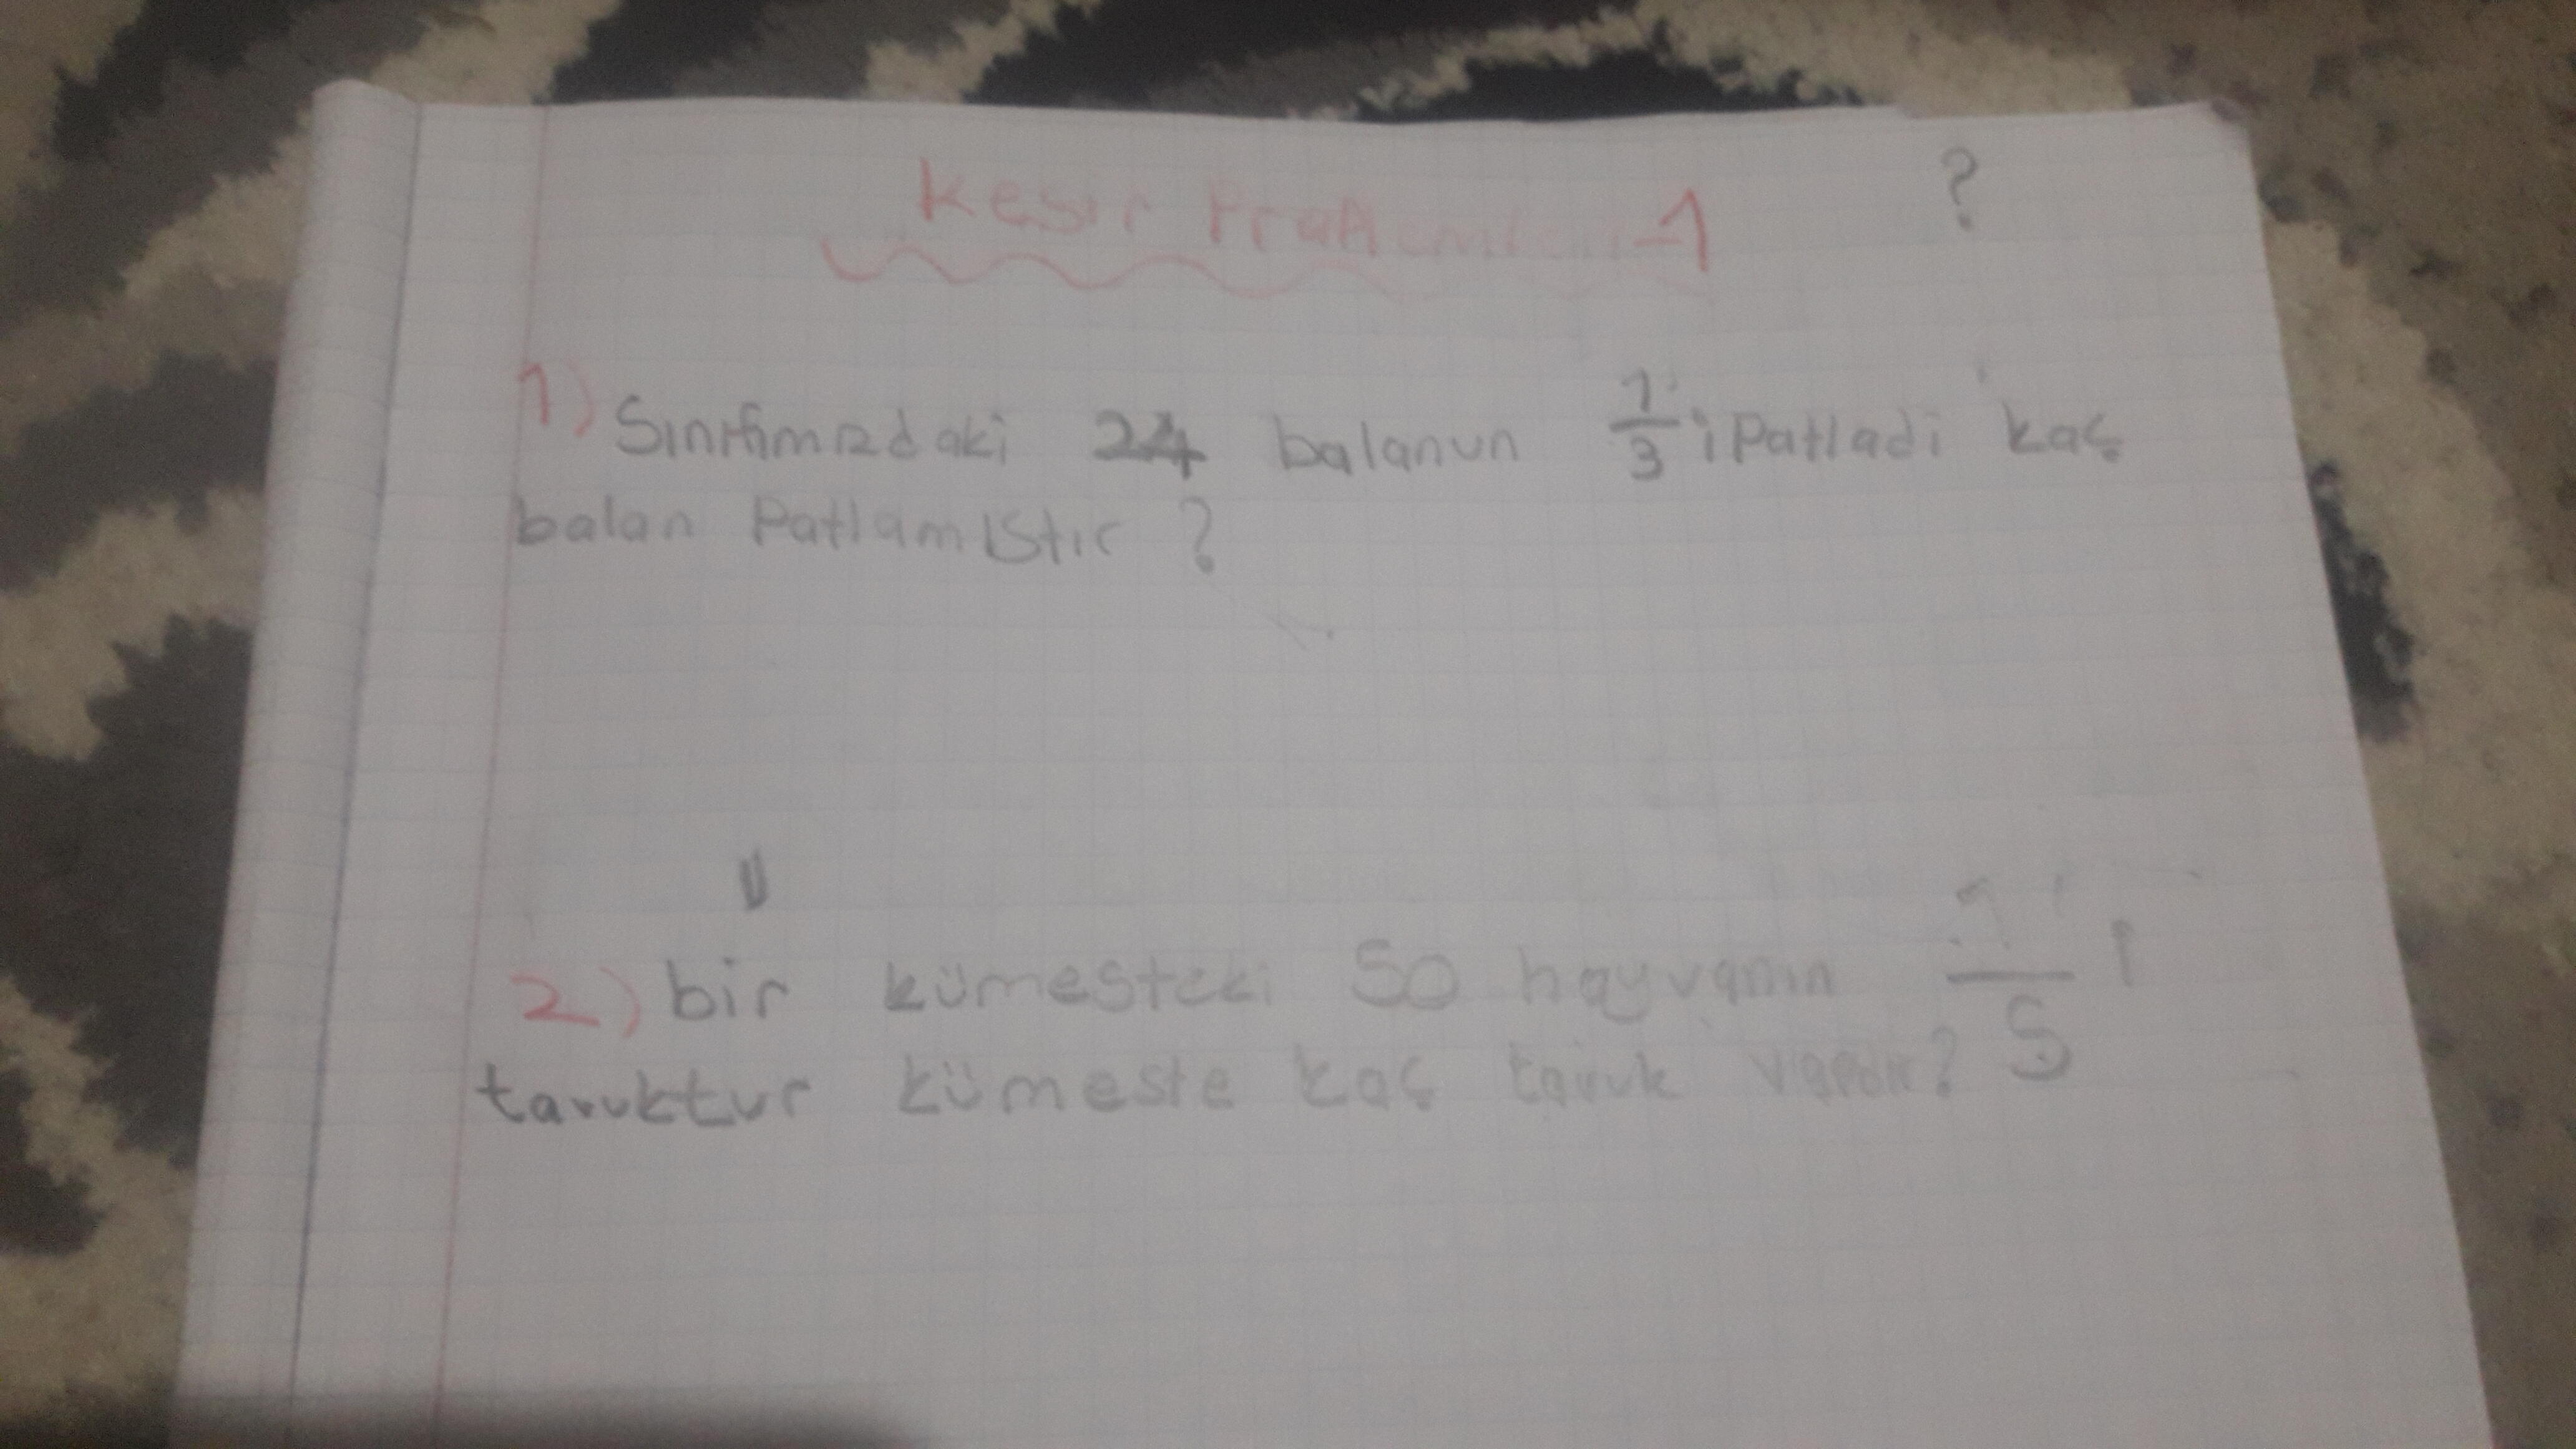 Kesir Problemleri-1
?
1) Sınıfımızdaki 24 balanun 1/3 i Patladi kaç
balan Patlamıştır ?
2) bir kümesteki 50 hayvanın 1/5 i
tavuktur kümeste kaç tavuk vardır?